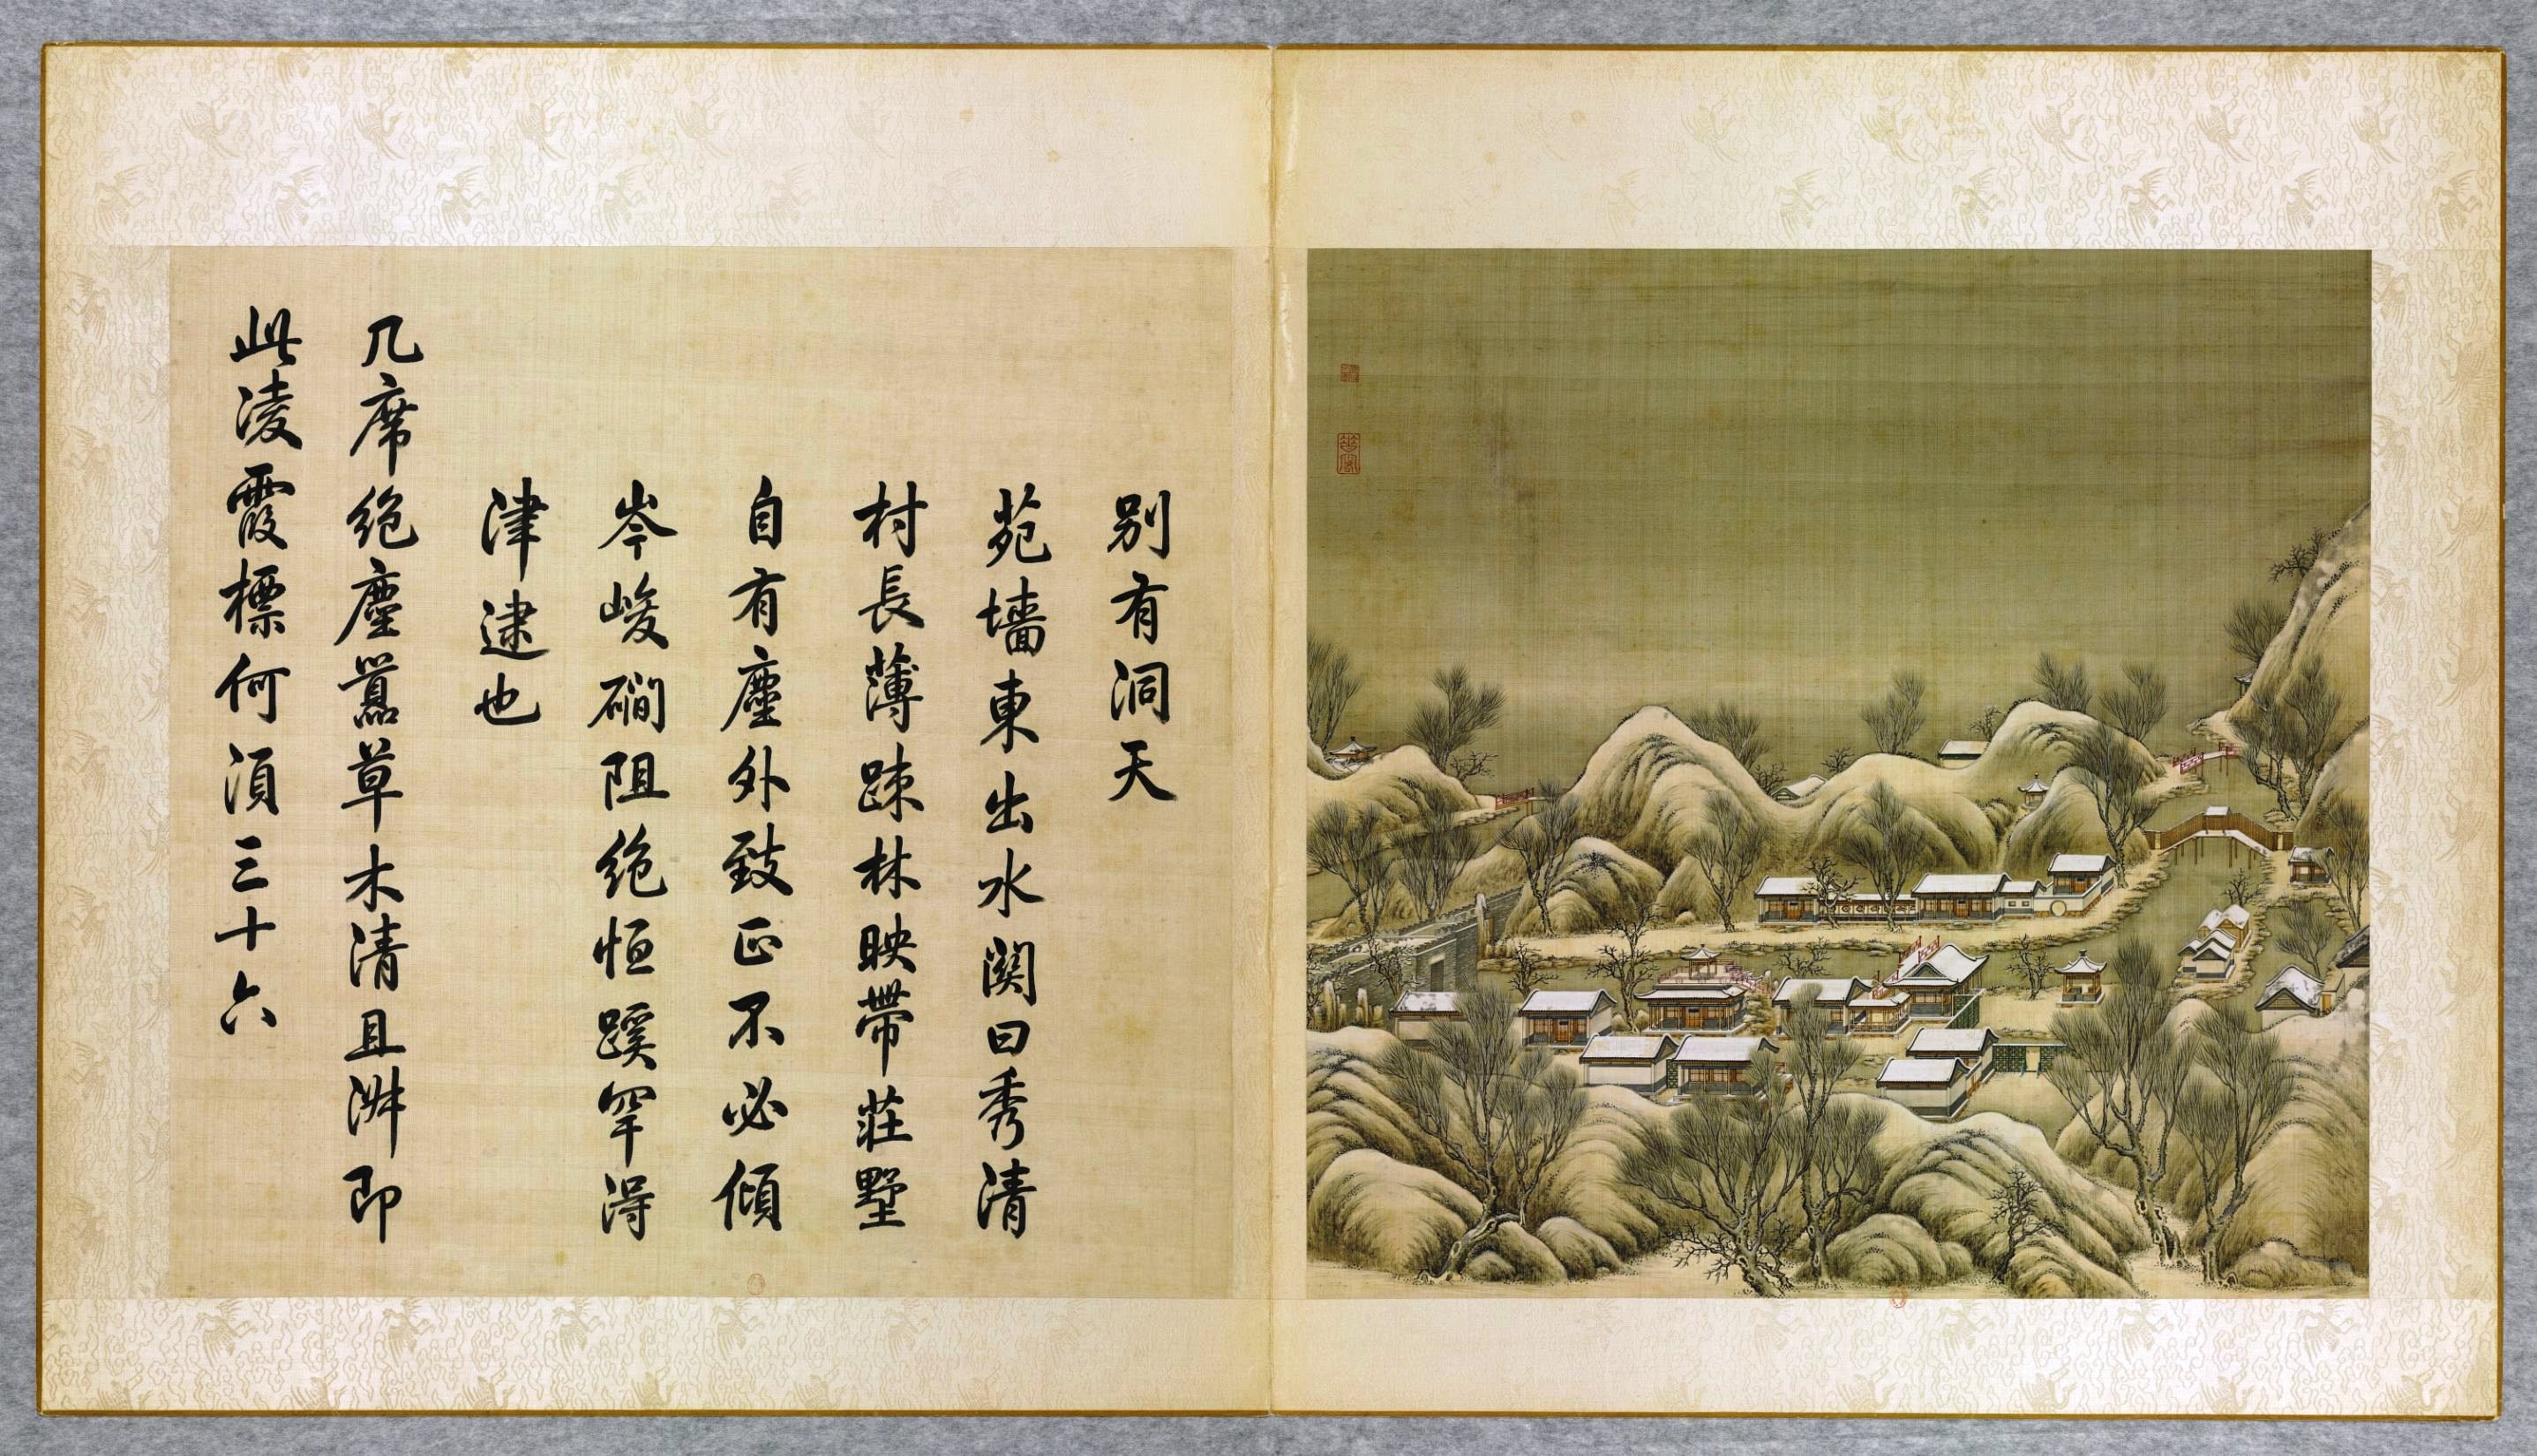 別有洞天
苑墻東出水関曰秀清
村長薄疎林映帶莊墅
自有塵外致正不必傾
岑峻磵阻絶恒蹊罕得
津逮也
几席絶塵囂草木清且淑即
此凌霞標何須三十六